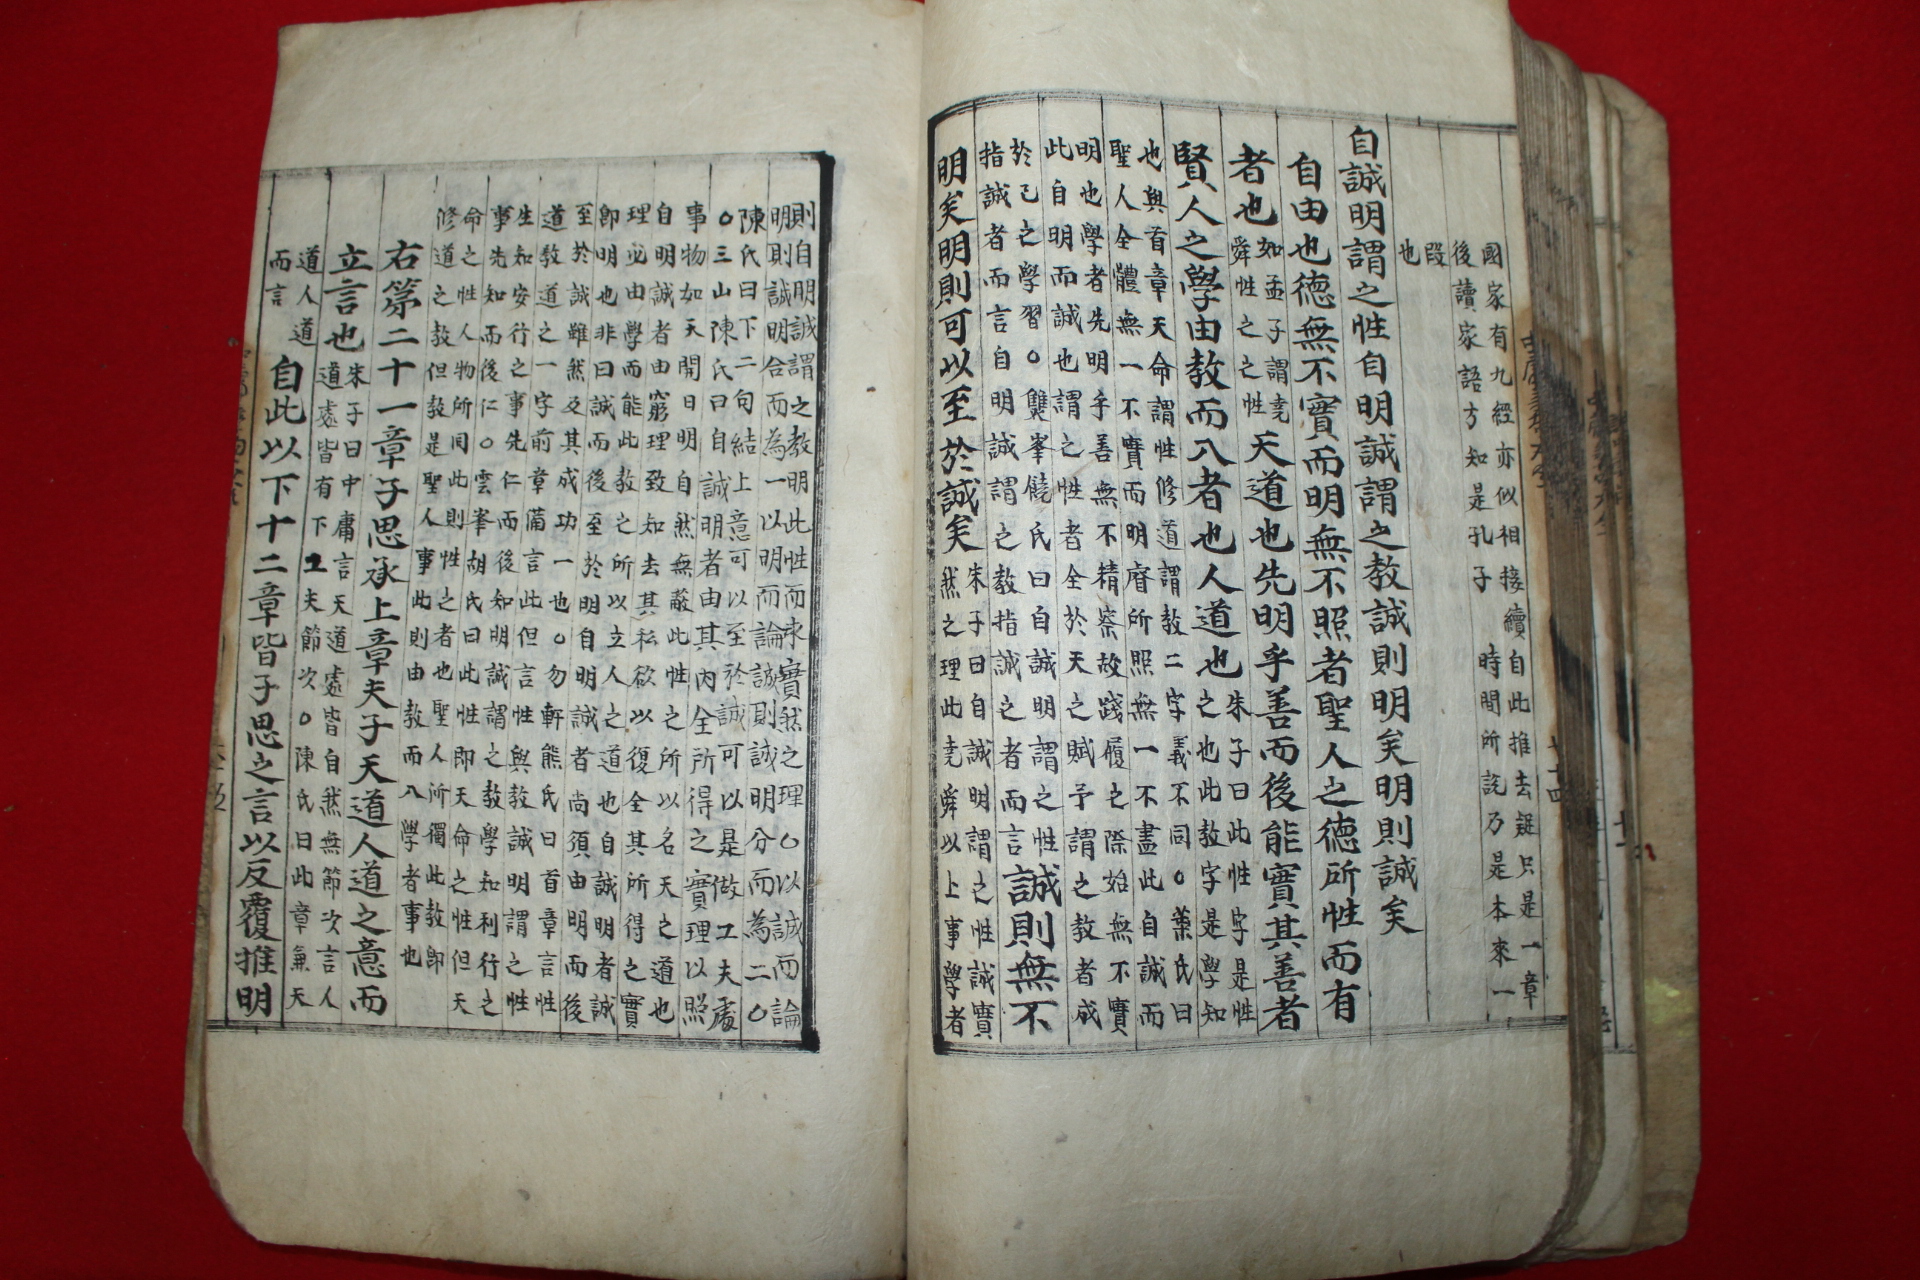 國家有九經亦似相接續自此推去疑只是一章
後讀家語方知是孔子時間所說乃是本來一
段
也
自誠明謂之性自明誠謂之教誠則明矣明則誠矣
自由也德無不實而明無不照者聖人之德所性而有
者也如孟子謂堯舜性之之性天道也先明乎善而後能實其善者
賢人之學由教而入者也人道也朱子曰此性字是性之也此教字是學知
也與首章天命謂性修道謂教二字義不同○葉氏曰
聖人全體無一不實而明睿所照無一不盡此自誠而
明也學者先明乎善無不精察故踐履之際始無不實
此自明而誠也謂之性者全於天之賦予謂之教者成
於己之學習○雙峯饒氏曰自誠明謂之性
指誠者而言自明誠謂之教指誠之者而言誠則無不
明矣明則可以至於誠矣朱子曰自誠明謂之性誠實然之理此堯舜以上事學者
則自明誠謂之教明此性而求實然之理○以誠而論
明則誠明合而為一以明而論誠則誠明分而為二○
陳氏曰下二句結上意可以至於誠可以是做工夫處
○三山陳氏曰自誠明者由其內全所得之實理以照
事物如天開日明自然無蔽此性之所以名天之道也
自明誠者由窮理致知去其私欲以復全其所得之實
理必由學而能此教之所以立人之道也自誠明者誠
即明也非曰誠而後至於明自明誠者尚須由明而後
至於誠雖然及其成功一也○勿軒熊氏曰首章言性
道教道之一字前章備言此但言性與教誠明謂之性
生知安行之事先仁而後知明誠謂之教學知利行之
事先知而後仁○雲峯胡氏曰此性即天命之性但天
命之性人物所同此則性之者也聖人所獨此教即
修道之教但教是聖人事此則由教而入學者事也
右第二十一章子思承上章夫子天道人道之意而
立言也朱子曰中庸言天道處皆自然無節次言人道處皆有下工夫節次○陳氏曰此章兼天
道人道而言自此以下十二章皆子思之言以反覆推明